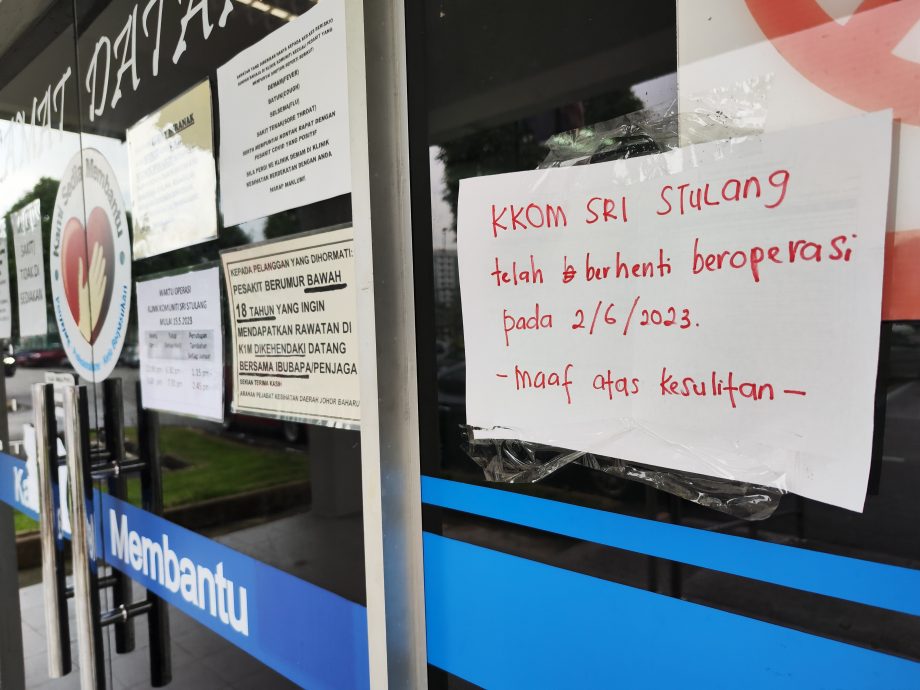 KKOM SRI STULANG
telah berhenti beroperasi
pada 2/6/2023.
-maaf atas kesulitan-
DEMAM(FEVER)
BATUK(COUGH)
SELSEMA(FLU)
SAKIT TEKAK(SORE THROAT)
SERTA MEMPUNYAI KONTAK RAPAT DENGAN
PESAKIT COVID YANG POSITIF
SILA PERGI KE KLINIK DEMAM DI KLINIK
KESIHATAN BERDEKATAN DENGAN ANDA
HARAP MAKLUM!!
KEPADA PELANGGAN YANG DIHORMATI:
PESAKIT BERUMUR BAWAH
18 TAHUN YANG INGIN
MENDAPATKAN RAWATAN DI
K1M DIKEHENDAKI DATANG
BERSAMA IBUBAPA/PENJAGA
SEKIAN TERIMA KASIH
ARAHAN PEJABAT KESIHATAN DAERAH JOHOR BAHARU
WAKTU OPERASI
KLINIK KOMUNITI SRI STULANG
MULAI 15.5.2023
Kami Sedia Membantu
SAKIT
TIDAK DI
SEDIAKAN
Membantu